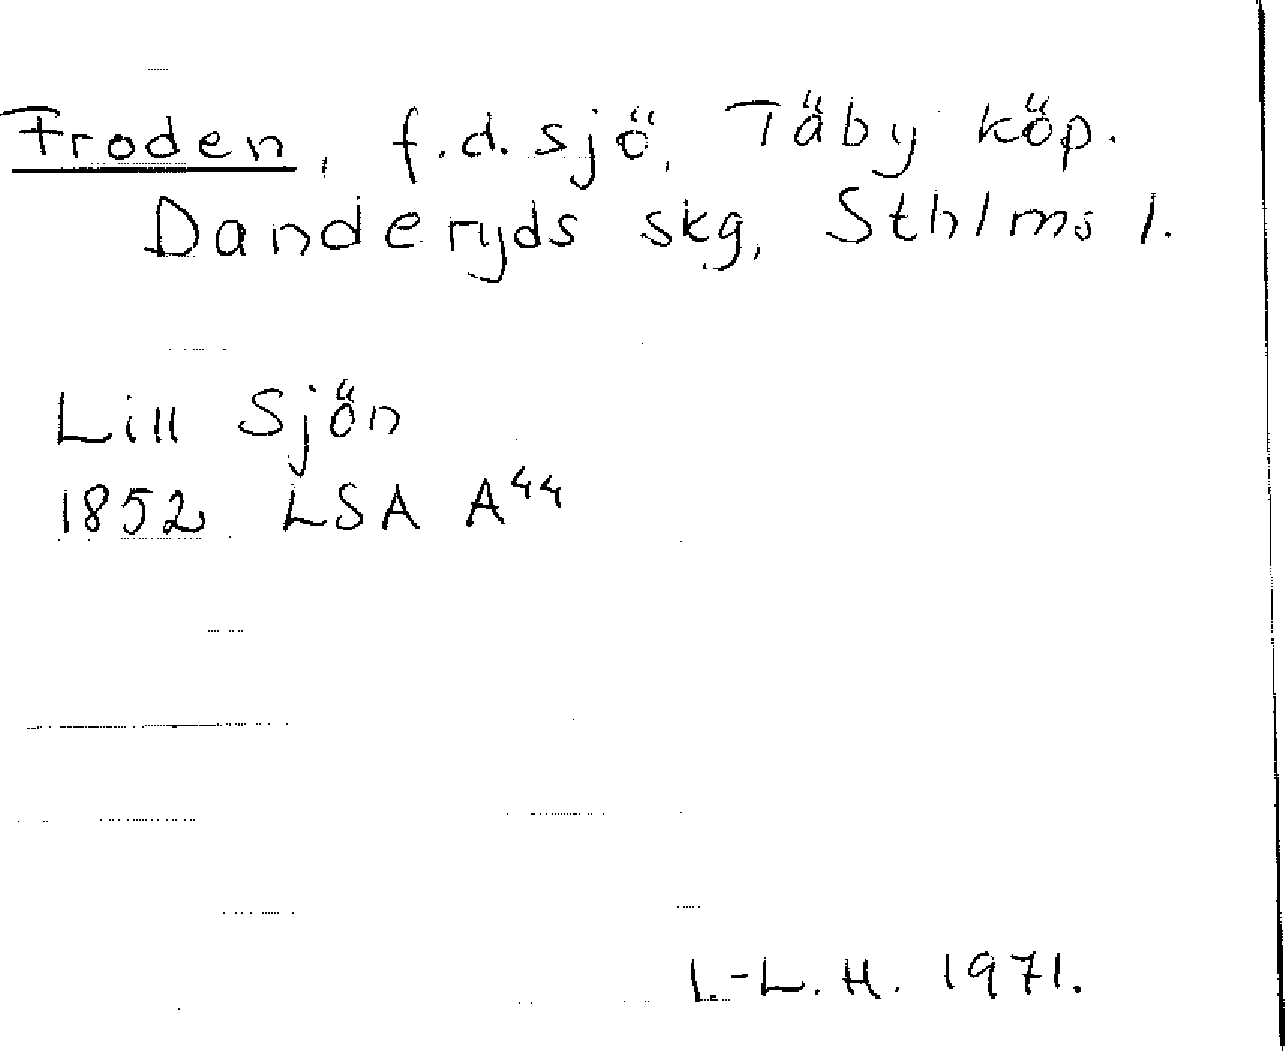 Froden, f.d. sjö, Täby köp.
Danderyds skg, Sthlms l.
Lill Sjön
1852 LSA A44
I.-L. H. 1971.